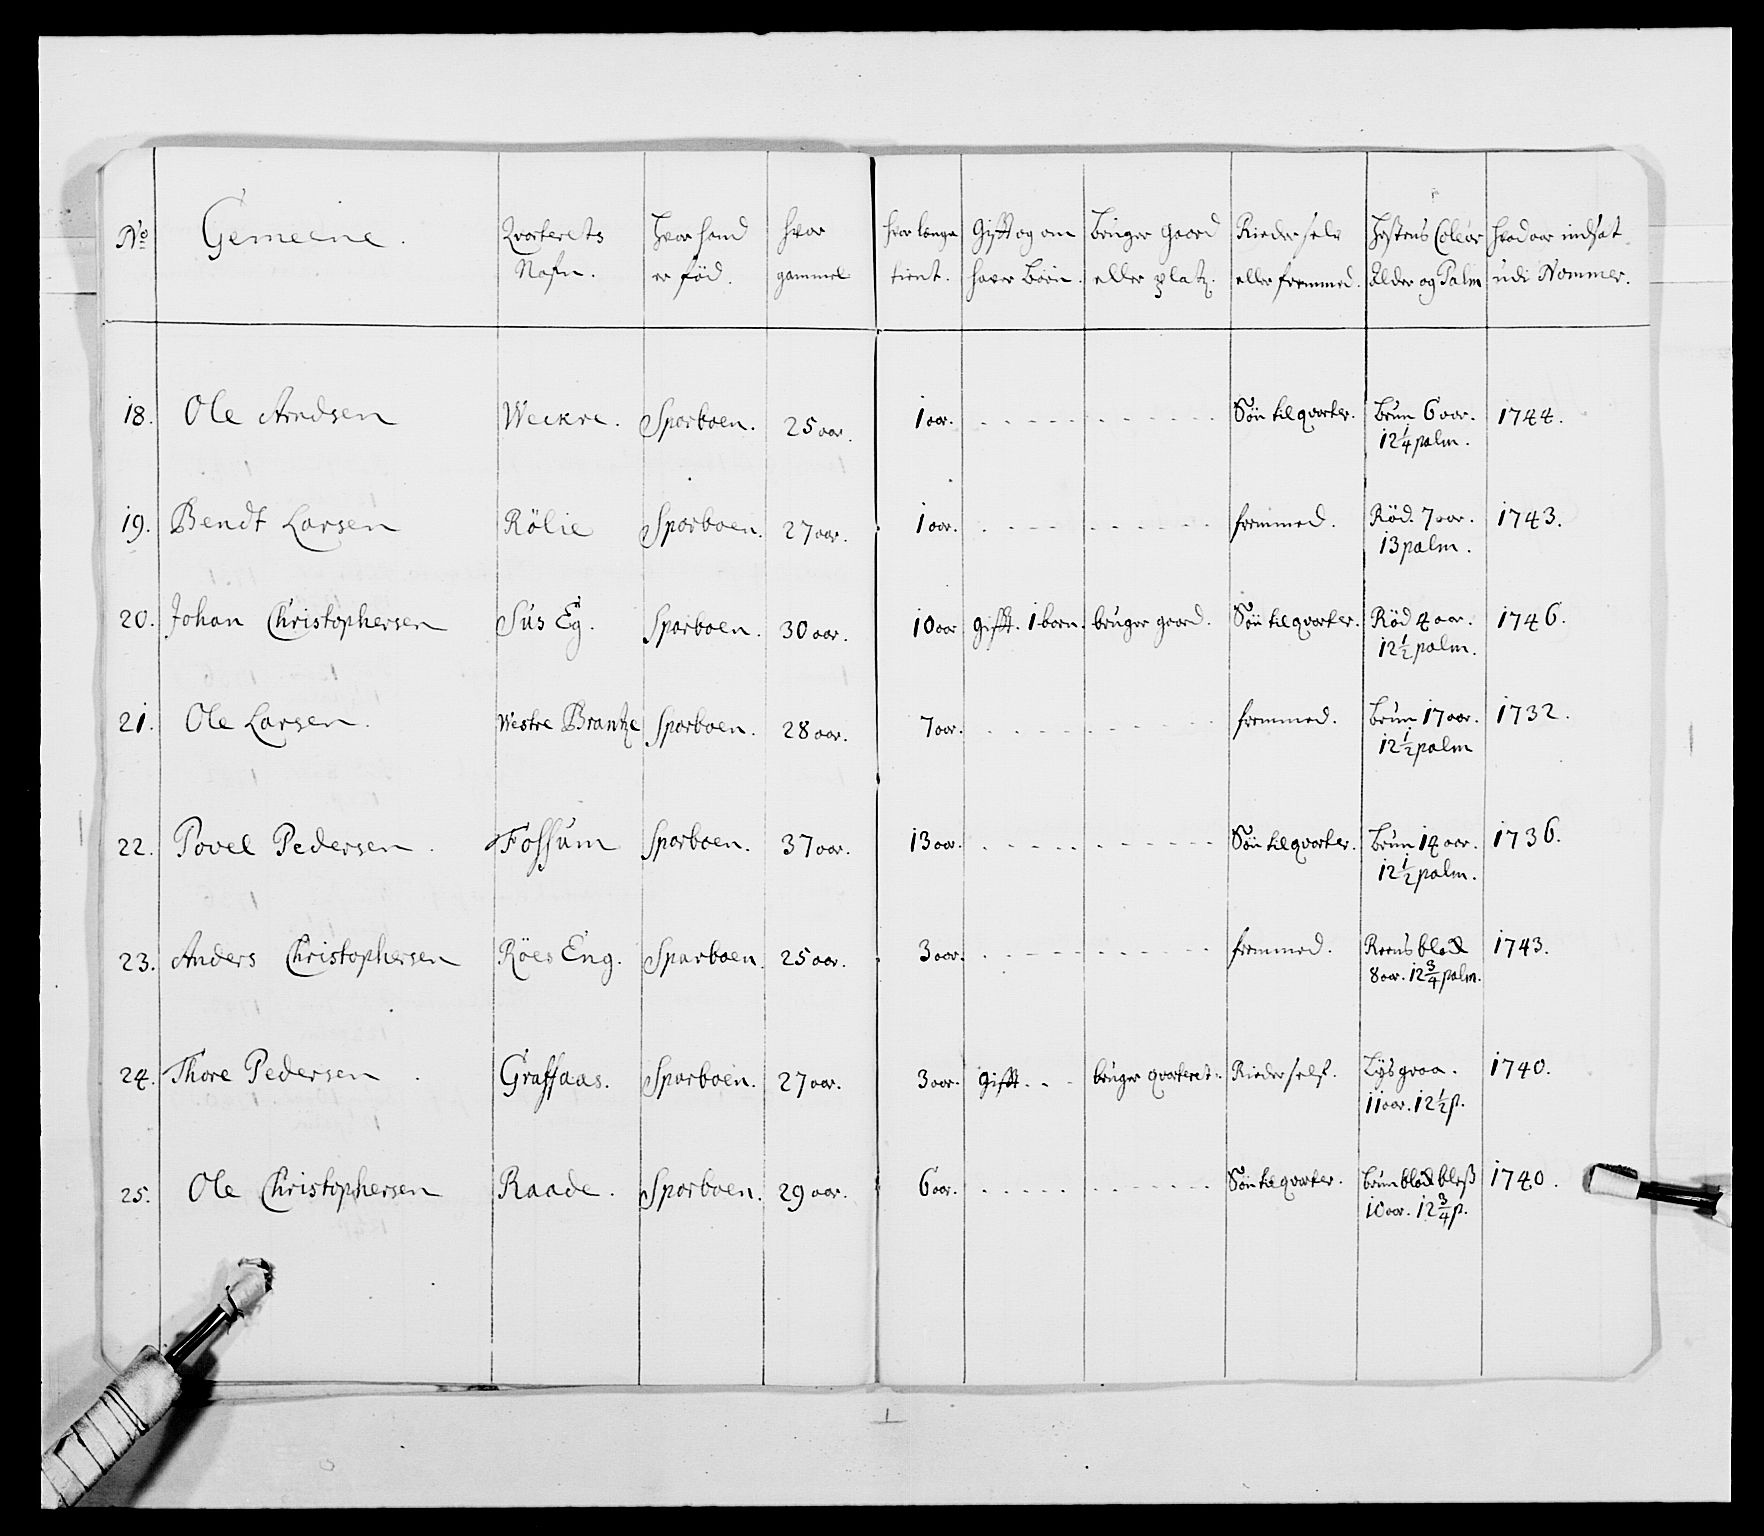 No Gemeine. Qvarterets Nafn. Hvor hand er född. Hvor gammel hvor lange tient. Gifft og om haver Börn. Bruger gaard eller platz. Rieder selv eller fremmed. Hestens Coleur Alder og Palm hvad aar indsat udi Nommer.
18. Ole Arndsen Weckre. Sparboen. 25 aar. 1 aar. Sön til qvarter. brun 6 aar. 12 1/4 palm. 1744.
19. Bendt Larsen Rölie Sparboen. 27 aar. 1 aar. fremmed. Röd. 7 aar. 13 palm. 1743.
20. Johan Christophersen Sus Eg. Sparboen. 30 aar. 10 aar Gifft. 1 barn. bruger gaard. Sön til qvarter. Röd 4 aar. 12 1/2 palm. 1746.
21. Ole Larsen. Westre Brantze Sparboen. 28 aar. 7 aar. fremmed. brun 17 aar. 12 1/2 palm 1732.
22. Povel Pedersen. Fossum Sparboen. 37 aar. 13 aar. Sön til qvarter. brun 14 aar. 12 1/2 palm. 1736.
23. Anders Christophersen Röes Eng. Sparboen. 25 aar. 3 aar. fremmed. blad 8 aar. 12 3/4 palm. 1743.
24. Thore Pedersen. Graffaas. Sparboen. 27 aar. 3 aar. gifft. bruger qvarteret. Rieder self. Lysgraa. 11 aar. 12 1/2 p. 1740.
25. Ole Christophersen Raade. Sparboen. 29 aar. 6 aar. Sön til qvarter. brunblad bless 10 aar. 12 3/4 p. 1740.